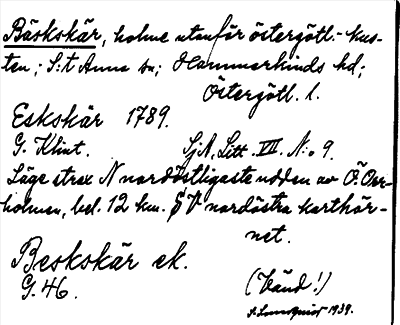 Bäskskär, holme utanför östergötl.-kus-
ten; S:t Anna sn; Hammarkinds hd;
Östergötl. l.
Eskskär 1789.
G. Klint. SjA. Litt. VII N:o 9.
Läge strax N nordöstligaste udden av Ö. Om-
holmen, bel. 12 km. SV nordöstra karthör-
net.
Beskskär ek.
G. 46. (Vänd!)
S. Lundquist 1939.